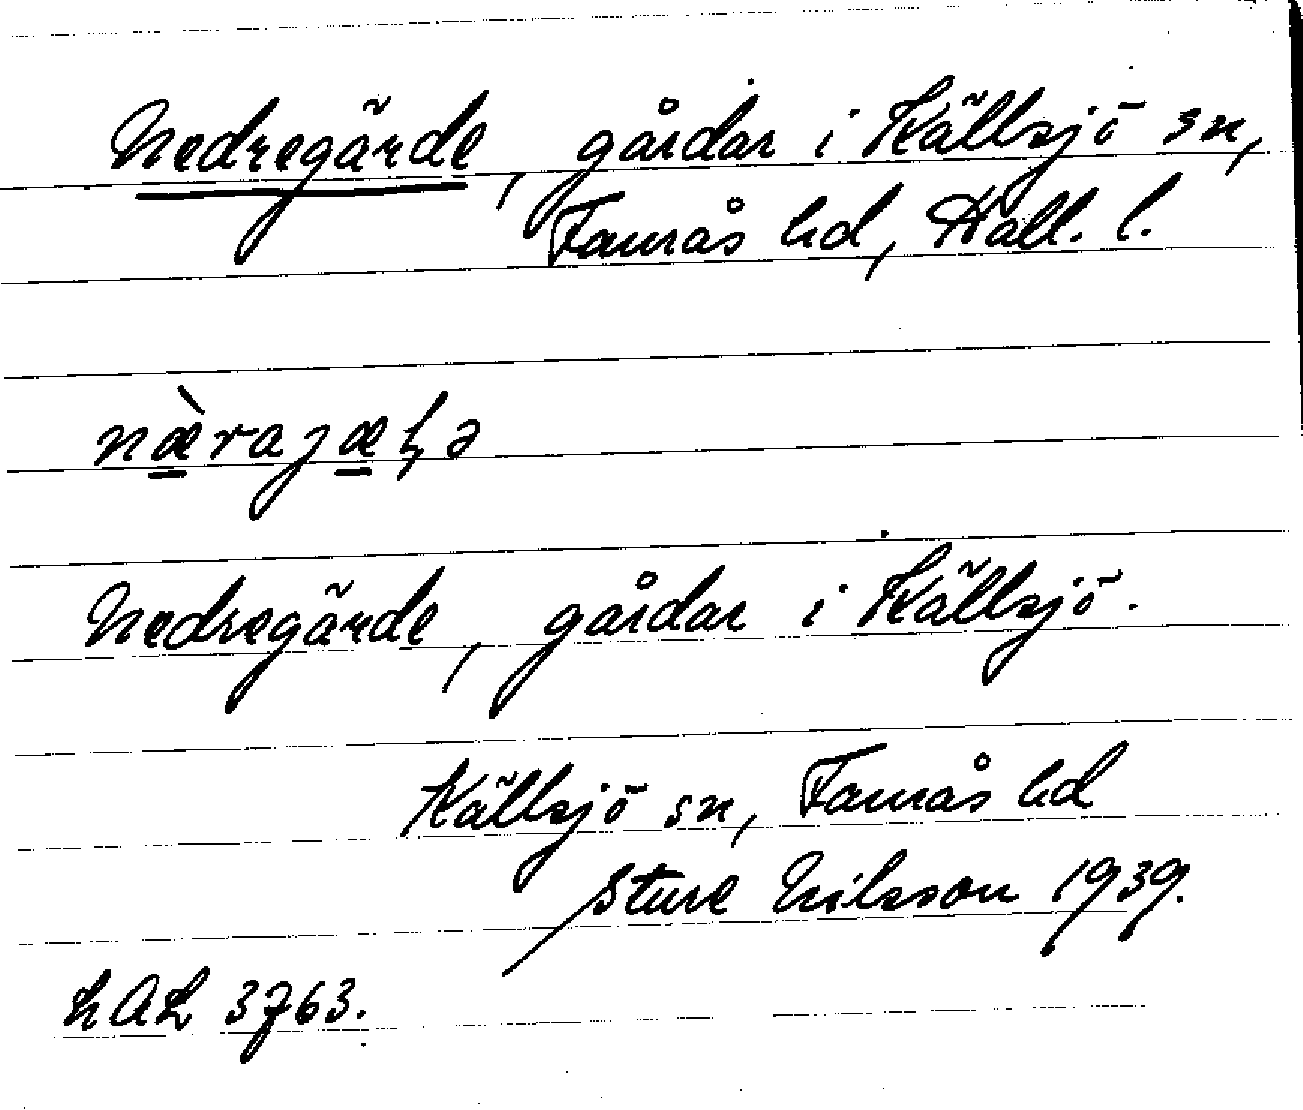 Nedregärde, gårdar i Källsjö sn,
Faurås hd, Hall. l.
næ̀rajæḷə
Nedregärde, gårdar i Källsjö.
Källsjö sn, Faurås hd
Sture Nilsson 1939.
LAL 3763.